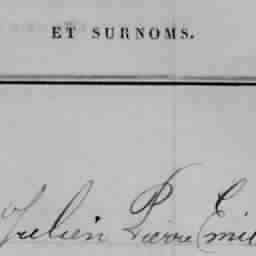 ET SURNOMS.
Julien Pierre Emil